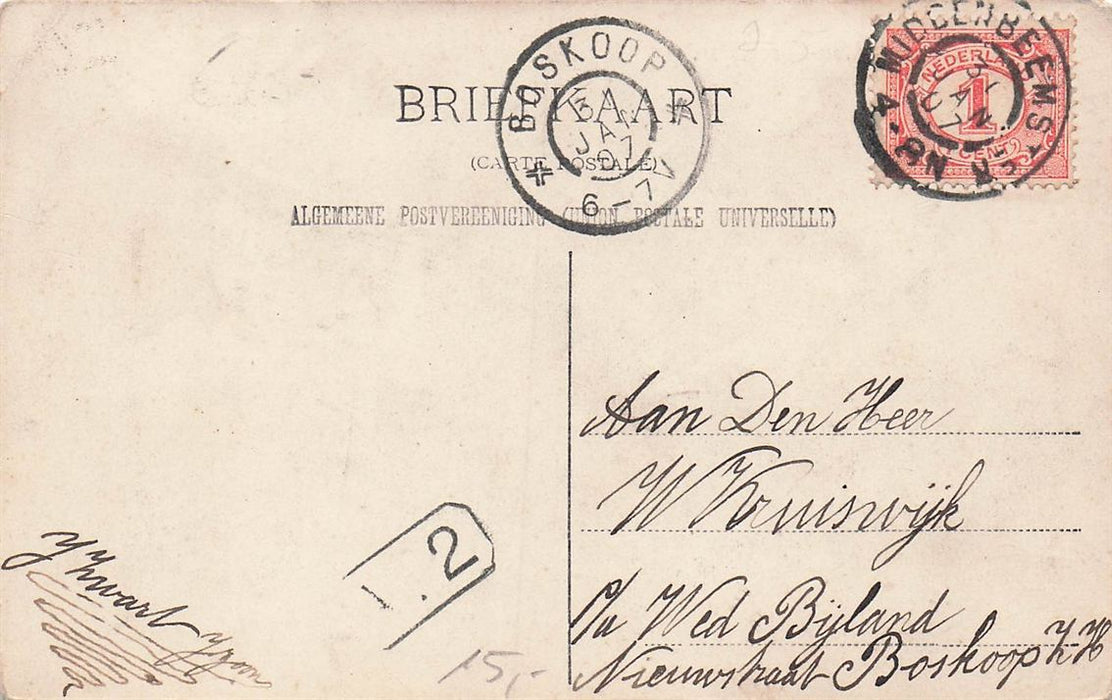 BRIEFKAART
(CARTE POSTALE)
ALGEMEENE POSTVEREENIGING (UNION POSTALE UNIVERSELLE)
BOSKOOP
JAN
07
6-7V
MIDDENBEEMSTER
31
JAN
07
4-8N
NEDERLAND
1
CENT
Aan Den Heer
W Kruiswijk
P/a Wed Bijland
Nieuwstraat Boskoop Z H
2
15,-